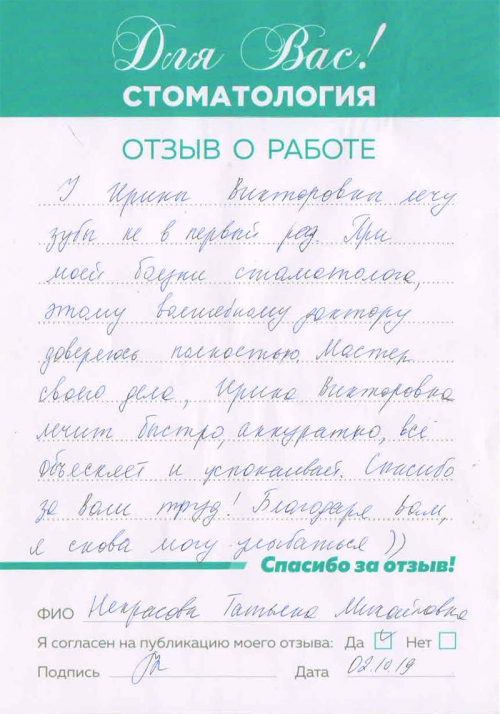 Для Вас!
СТОМАТОЛОГИЯ
ОТЗЫВ О РАБОТЕ
У Ирины Викторовны лечу
зубы не в первый раз. При
моей боязни стаматолога,
этому волшебному доктору
доверяюсь полностью. Мастер
своего дела, Ирина Викторовна
лечит быстро, аккуратно, всё
объясняет и успокаивает. Спасибо
за Ваш труд! Благодаря Вам,
я снова могу улыбаться ))
Спасибо за отзыв!
ФИО Некрасова Татьяна Михайловна
Я согласен на публикацию моего отзыва: Да ☑ Нет ☐
Подпись Дата 02.10.19